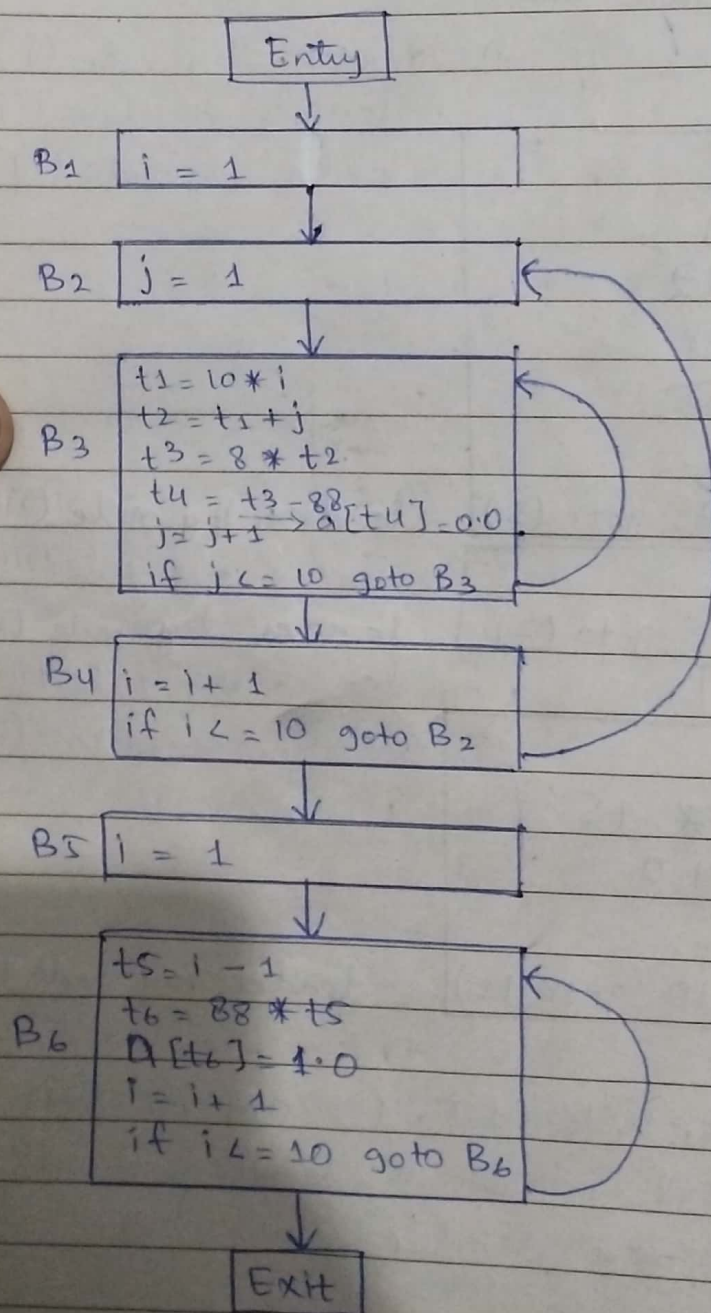 Entry
B1 i = 1
B2 j = 1
B3
t1 = 10 * i
t2 = t1 + j
t3 = 8 * t2
t4 = t3 - 88
j = j + 1 → a[t4] = 0.0
if j <= 10 goto B3
B4 i = i + 1
if i <= 10 goto B2
B5 i = 1
B6
t5 = i - 1
t6 = 88 * t5
a[t6] = 1.0
i = i + 1
if i <= 10 goto B6
Exit